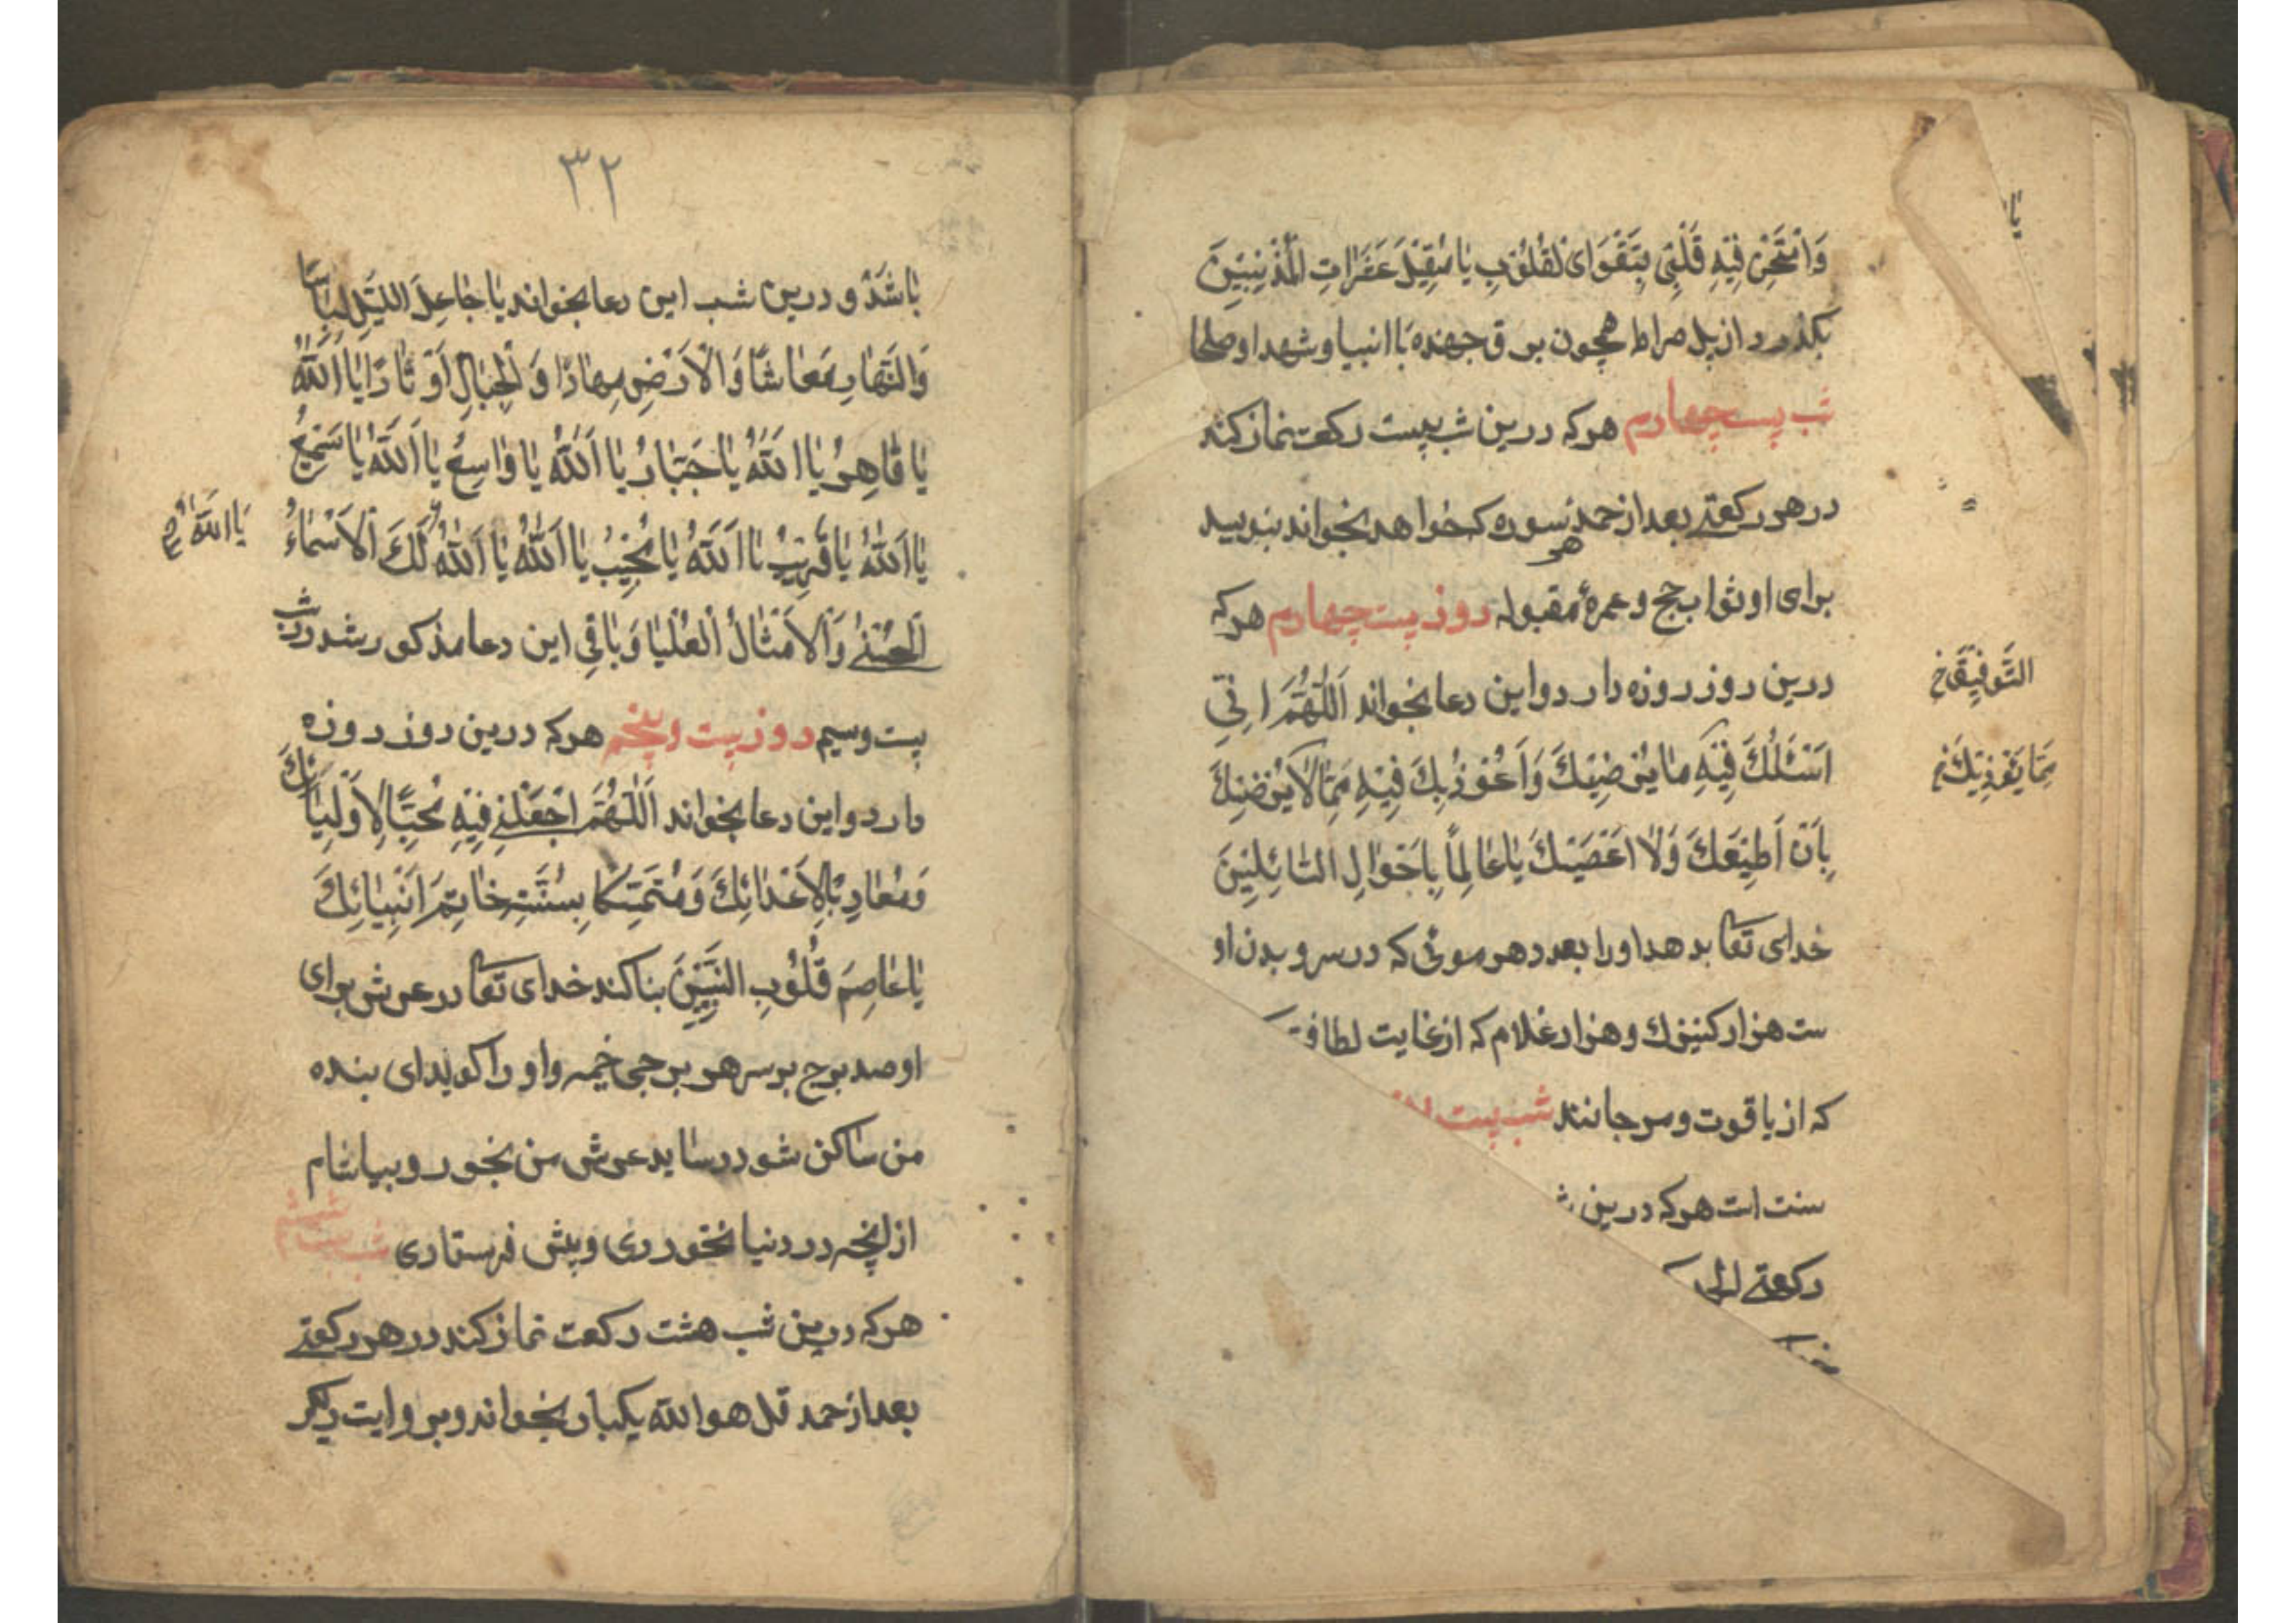 وَامْتَحِنْ فِيْهِ قَلْبِيْ بِتَقْوَاىَ لْقُلُوْبِ يَا مُقِيْلَ عَثَرَاتِ الْمُذْنِبِيْنَ
بكذرد از پل صراط همچون برق جهنده با انبيا و شهدا و صلحا
شب بيست چهارم هركه درين شب بيست ركعت نماز كند
در هر ركعتے بعد از حمد هر سوره كه خواهد بخواند بنويسد
براى او ثواب حج و عمرۀ مقبوله روز بيست چهارم هركه
درين روز روزه دارد و اين دعا بخواند اَللّٰهُمَّ اِنِّيْ
التَّوفِيْقَ خ
اَسْئَلُكَ فِيْهِ مَا يُرْضِيْكَ وَاَعُوْذُ بِكَ فِيْهِ مِمَّا لَا يُرْضِيْكَ
مِمَّا يُؤْذِيْكَ
بِاَنْ اُطِيْعَكَ وَلَا اَعْصَيْكَ يَا عَالِمًا بِاَحْوَالِ السَّائِلِيْنَ
خداى تعا بدهد او را بعدد هر موئى كه در سر و بدن او
ست هزار كنيزك و هزار غلام كه از غايت لطافت
كه از ياقوت و مرجانند شب بيست
سنت است هركه درين
ركعتے
٣٢
بَاشَدْ و درين شب اين دعا بخواند يَا جَاعِلَ اللَّيْلِ لِبَاسًا
وَالنَّهَارِ مَعَاشًا وَالْاَرْضِ مِهَادًا وَ الْجِبَالِ اَوْتَادًا يَا اَللّٰهُ
يَا قَاهِرُ يَا اَللّٰهُ يَا جَبَّارُ يَا اَللّٰهُ يَا وَاسِعُ يَا اَللّٰهُ يَا سَمِيْعُ
يَا اَللّٰهُ يَا قَرِيْبُ يَا اَللّٰهُ يَا مُجِيْبُ يَا اَللّٰهُ يَا اَللّٰهُ لَكَ الْاَسْمَاءُ
يَا اَللّٰهُ
الْحُسْنٰى وَالْاَمْثَالُ الْعُلْيَا وَبَاقِى اين دعا مذكور شد در شب
بيست و سيم روز بيست و پنجم هركه درين روز روزه
دارد و اين دعا بخواند اَللّٰهُمَّ اجْعَلْنِيْ فِيْهِ مُحِبًّا لِاَوْلِيَائِكَ
وَمُعَادِيًا لِاَعْدَائِكَ وَمُتَمَسِّكًا بِسُنَّتِ خَاتِمِ اَنْبِيَائِكَ
يَا عَاصِمَ قُلُوْبِ النَّبِيِّيْنَ بنا كند خداى تعا در عرش براى
او صد برج بر سر هر برجى خيمه و او را گويد اى بنده
من ساكن شو در سايه عرش من بخور و بياشام
از انچه در دنيا نخوردى و پيش فرستادى شب بيست ششم
هركه درين شب هشت ركعت نماز كند در هر ركعتے
بعد از حمد قل هو الله يكبار بخواند و بروايت ديگر